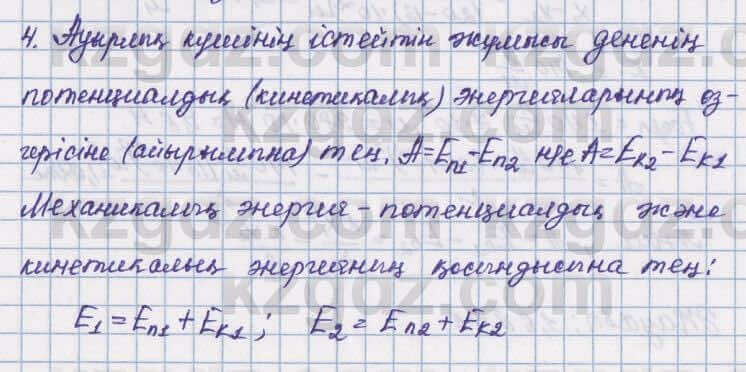 4. Ауырлық күшінің істейтін жұмысы дененің
потенциалдық (кинетикалық) энергияларының өз-
герісіне (айырымына) тең. A=Eп1-Eп2 не A=Eк2-Eк1
Механикалық энергия - потенциалдық және
кинетикалық энергияның қосындысына тең:
E1=Eп1+Eк1; E2=Eп2+Eк2